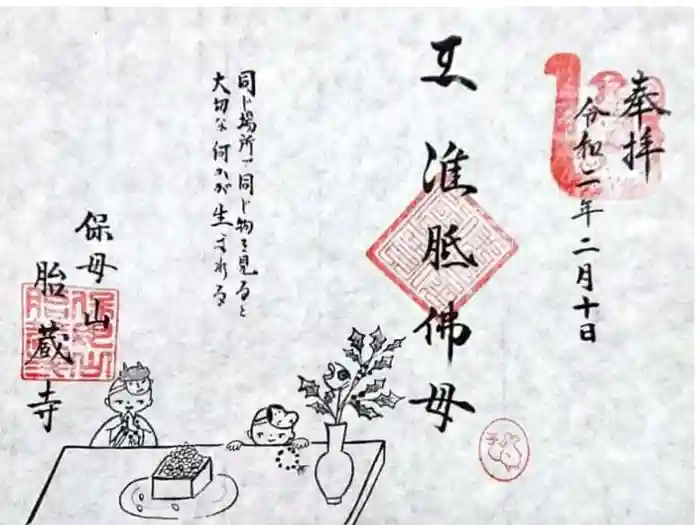 奉拝
令和二年二月十日
准胝佛母
同じ場所で同じ物を見ると
大切な何かが生まれる
保母山
胎蔵寺
子